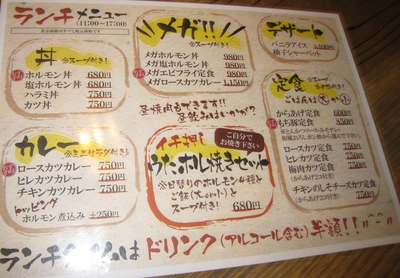 ランチメニュー
(11:00~17:00)
丼
※スープ付き!
ホルモン丼 680円
塩ホルモン丼 680円
ハラミ丼 750円
カツ丼 750円
カレー
※ミニサラダ付き!
ロースカツカレー 750円
ヒレカツカレー 750円
チキンカツカレー 750円
トッピング
ホルモン煮込み +250円
メガ!!
※スープ付き!
メガホルモン丼 980円
メガ塩ホルモン丼 980円
メガエビフライ定食 980円
メガロースカツカレー 1,150円
昼焼肉もできます!!
昼飲みはいかが?
イチ押し
ご自分で
お焼き下さい
うたホル焼きセット
※日替りのホルモン4種と
ご飯(大and小)と
スープ付き!
680円
デザート
バニラアイス
柚子シャーベット
定食
※スープ付き!
からあげ定食 680円
もち豚定食 850円
ロースカツ定食 750円
ヒレカツ定食 750円
梅肉カツ定食 750円
(からあげ2コ付き)
チキンのしそチーズカツ定食 750円
(からあげ2コ付き)
ランチタイムはドリンク(アルコール含む)半額!!